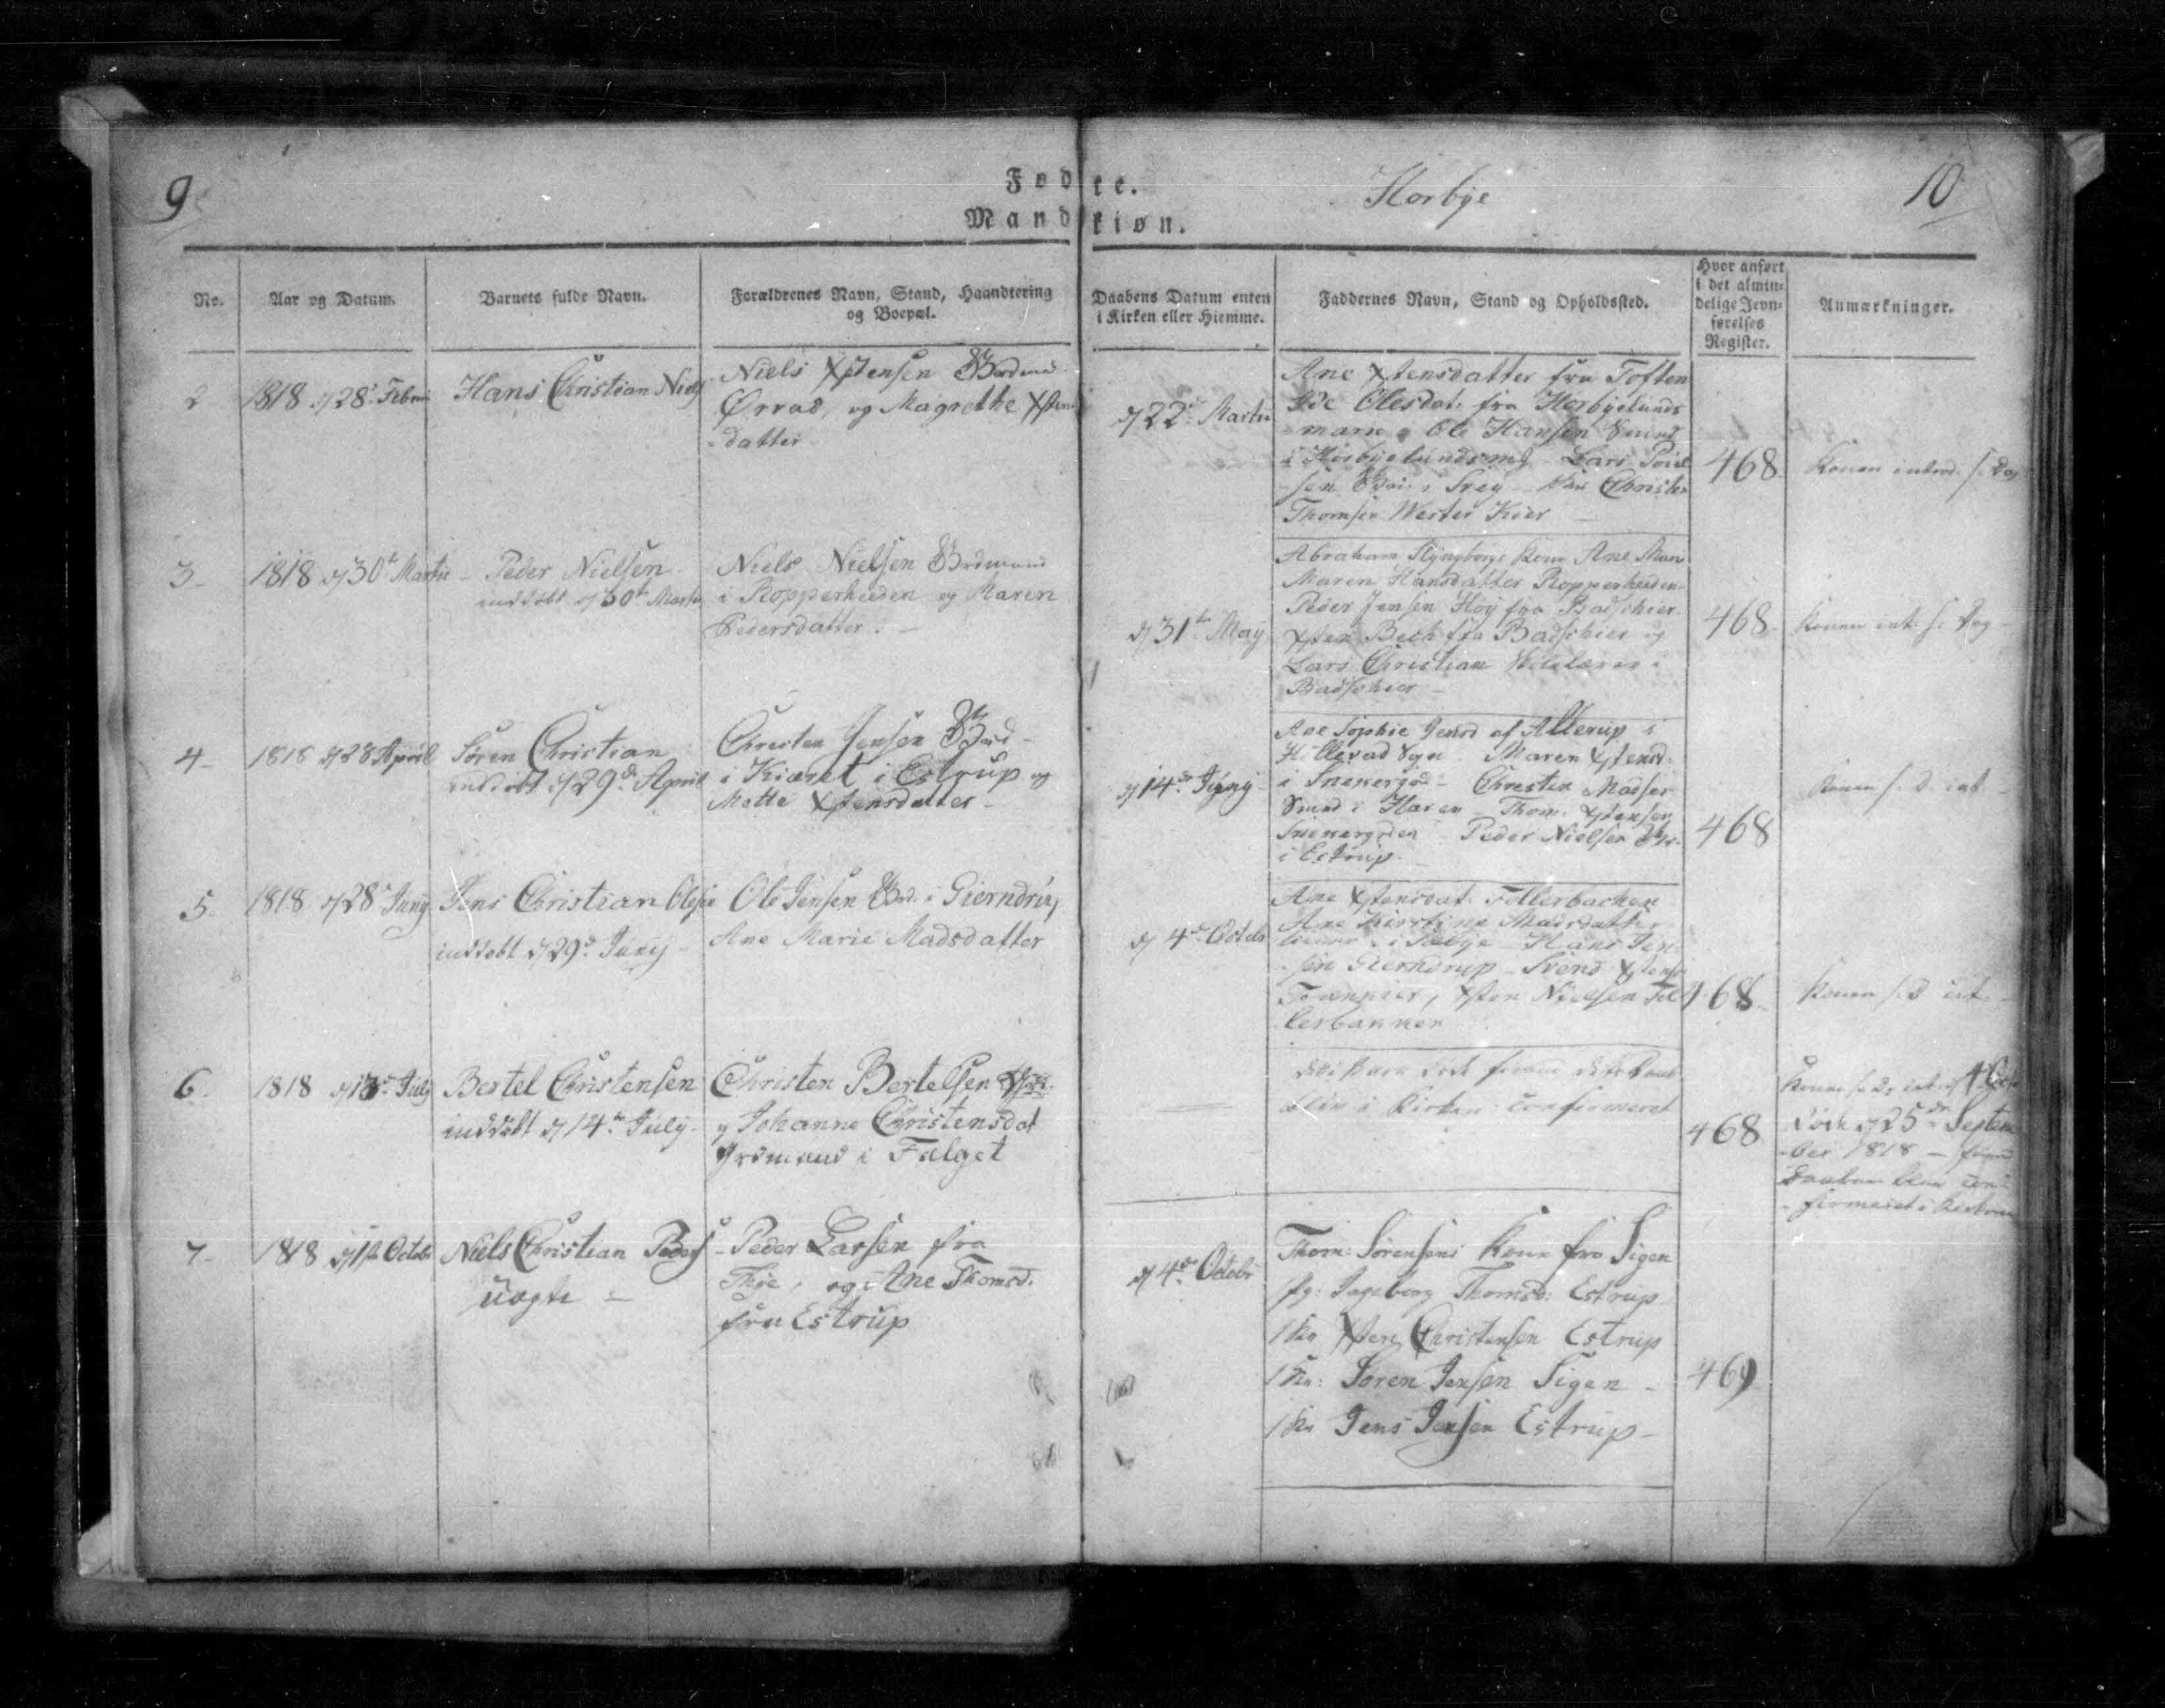 9
Fødte.
Horbye
10
Mandkiøn.
No.
Aar og Datum.
Barnets fulde Navn.
Forældrenes Navn, Stand, Haandtering
og Boepæl.
Daabens Datum enten
i Kirken eller Hiemme.
Faddernes Navn, Stand og Opholdssted.
Hvor anført
i det almin-
delige Jevn-
førelses
Register.
Anmærkninger.
2
1818 d 28 Febr
Hans Christian Niels
Niels Xstensen
Ørrad, og Magrethe Xstens
-datter
d 22 Martii
Ane Xstensdatter fra Toften
Olesdat: fra Horbyelunds
mark Ole Hansen Smed
i Horbyelundsm Lars
sen i Christen
Thomsen Wester Kier
468
Konen introd. s. Dag
3
1818 d 30 Martii
Peder Nielsen
inddøbt d 30 Martii
Niels Nielsen
i Ropperheeden og Maren
Pedersdatter.
d 31 May
Abraham Kone Ane
Maren Hansdatter Ropperheeden
Peder Jensen Høy fra Badskier
Xsten Bech fra Badskier og
Lars Christian i
Badskier
468
Konen int. s. Dag
4
1818 d 28 April
Søren Christian
inddøbt d 29 April
Christen Jensen
i Kiæret i Estrup og
Mette Xstensdatter
d 14 Juny
Ane Sophie Jensd af Allerup i
Hillerad Sogn Maren Xstensd.
i Christen Madsen
Smed i Thom. Xstensen
Peder Nielsen
i Estrup
468
Konen s. D. int.
5
1818 d 28 Juny
Jens Christian Olesen
inddøbt d 29 Juny
Ole Jensen i Gierndrup
Ane Marie Madsdatter
d 4 Octob
Ane Xstensdat. Fellerbacken
Ane Kirstine Madsdatter
i Sæbye Hans Jen-
sen Gierndrup Svend Xstensen
Xsten Nielsen Fel
lerbanken
468
Konen s. D int.
6
1818 d 13 July
Bertel Christensen
inddøbt d 14 July
Christen Bertelsen
og Johanne Christensdat
i Falget
dette Barn døde
i Kirken confirmeret
468
Konen s. D. int. d 4 Oct
døde d 25 Septem
-ber 1818
Daaben blev con
-firmeret i Kirken
7
1818 d 1 Octobr
Niels Christian Peders
uægte
Peder Larsen fra
Thye, og Ane Thomsd.
fra Estrup
d 4 Octobr
Thom: Sørensens Kone fra Sigen
pg: Ingeborg Thomsd: Estrup
Xsten Christensen Estrup
Søren Jensen Sigen
Jens Jensen Estrup
469